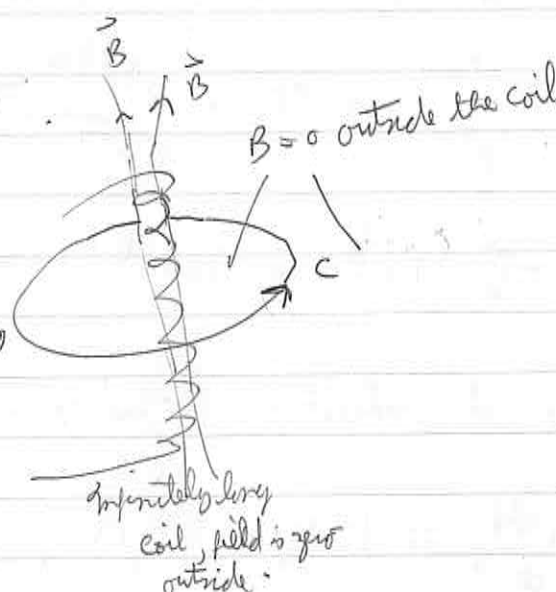 B⃗
B⃗
B = 0 outside the coil
C
Infinitely long
coil, field is zero
outside.